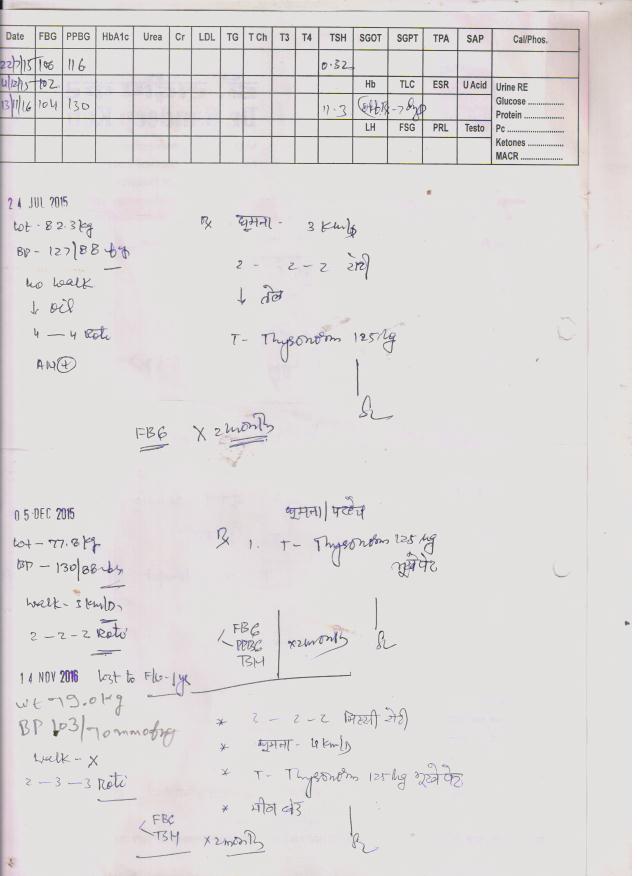 Date FBG PPBG HbA1c Urea Cr LDL TG T Ch T3 T4 TSH SGOT SGPT TPA SAP Cal/Phos.
22/7/15 106 116 0.32
4/12/15 102 Hb TLC ESR U Acid Urine RE
13/11/16 104 130 11.3 Glucose ..............
Protein ..............
LH FSG PRL Testo Pc ..............
Ketones ..............
MACR ..............
24 JUL 2015
wt - 82.3 kg
BP - 127/88
no walk
↓ oil
4 - 4 Roti
AN +
Rx घूमना - 3 Km/D
2 - 2 - 2 रोटी
↓ तेल
T - Thyronorm 125 µg
FBG X 2 months
05 DEC 2015
wt - 77.8 kg
BP - 130/88
walk - 3 km/D
2 - 2 - 2 Roti
घूमना / परहेज
Rx 1. T - Thyronorm 125 µg
भूखे पेट
FBG
PPBG
TSH
x 2 months
14 NOV 2016 Lost to F/U - 1 yr
wt 79.0 kg
BP 103/70 mmofHg
walk - X
2 - 3 - 3 Roti
* 2 - 2 - 2 मिस्सी रोटी
* घूमना - 4 km/D
* T - Thyronorm 125 µg भूखे पेट
* मीठा बंद
FBG
TSH
x 2 months